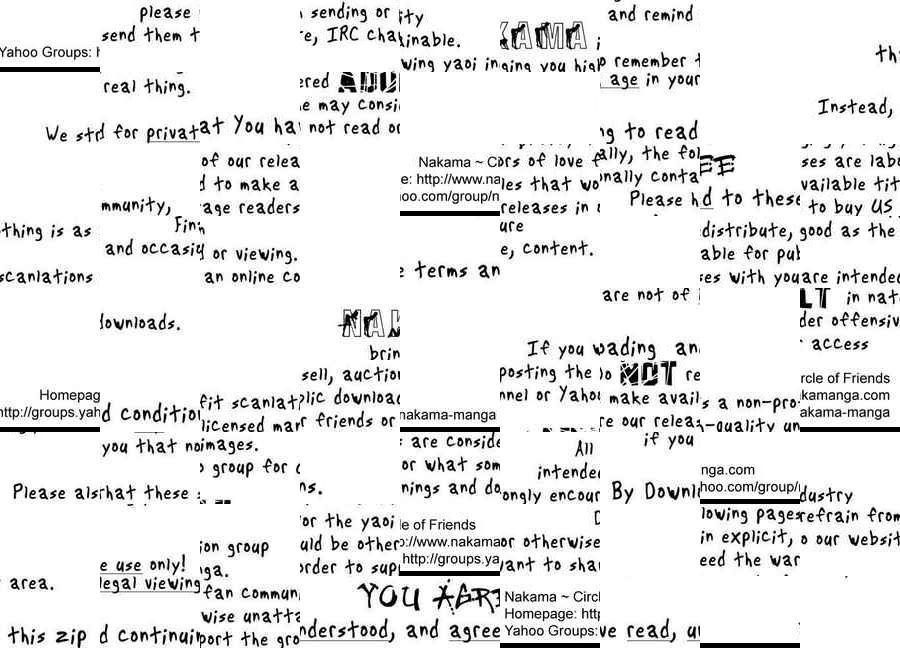 please sending or ity and remind
send them t e, IRC cha inable. KAMA
Yahoo Groups: th
wing yaoi in ging you high remember
real thing. ered ADU age in your
e may consi Instead,
We st d for privat at You ha not read or ng to read
of our relea Nakama ~ C ors of love f ally, the fol EE ses are lab
d to make a e: http://www.na les that wo onally conta vailable tit
mmunity, age readers oo.com/group/n releases in Please h d to these to buy US
thing is as Fin ure distribute, good as the
and occasi or viewing. e, content. able for pub
scanlations an online co terms an ses with you are intended
are not of LT in nat
downloads. NAK der offensiv
brin If you ading an access
sell, auctio posting the o NOT re rcle of Friends
Homepag fit scanlat lic downloa nnel or Yaho make avail s a non-pro kamanga.com
http://groups.yah d conditio licensed man r friends or nakama-manga re our relea -quality un akama-manga
you that no images. are conside All if you
group for or what som intended nga.com
Please als that these ns. nings and do ongly encour By Downl hoo.com/group/ dustry
or the yaoi le of Friends lowing pages refrain from
ion group uld be other p://www.nakama or otherwise in explicit, o our websit
e use only! nga. order to sup http://groups.ya want to sha eed the war
area. legal viewing fan commun YOU AGRE Nakama ~ Circl
wise unatta Homepage: htt
this zip d continui port the gro nderstood, and agree Yahoo Groups: ve read, u